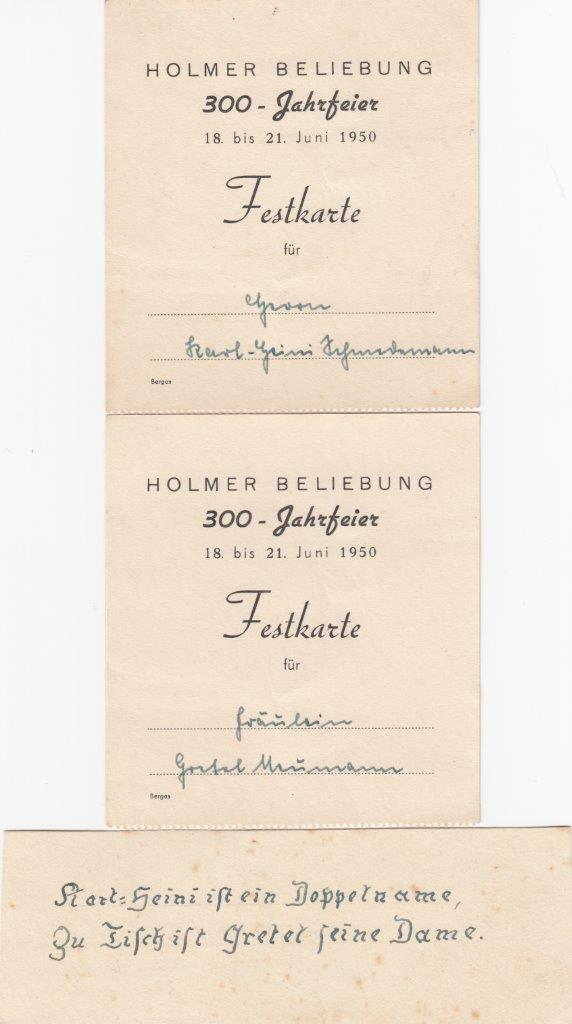 HOLMER BELIEBUNG
300 - Jahrfeier
18. bis 21. Juni 1950
Festkarte
für
Herrn
Karl-Heini Schmedemann
Bergas
HOLMER BELIEBUNG
300 - Jahrfeier
18. bis 21. Juni 1950
Festkarte
für
Fräulein
Gretel Neumann
Bergas
Karl-Heini ist ein Doppelname,
Zu Tisch ist Gretel seine Dame.